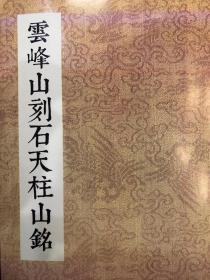 雲峰山刻石天柱山銘